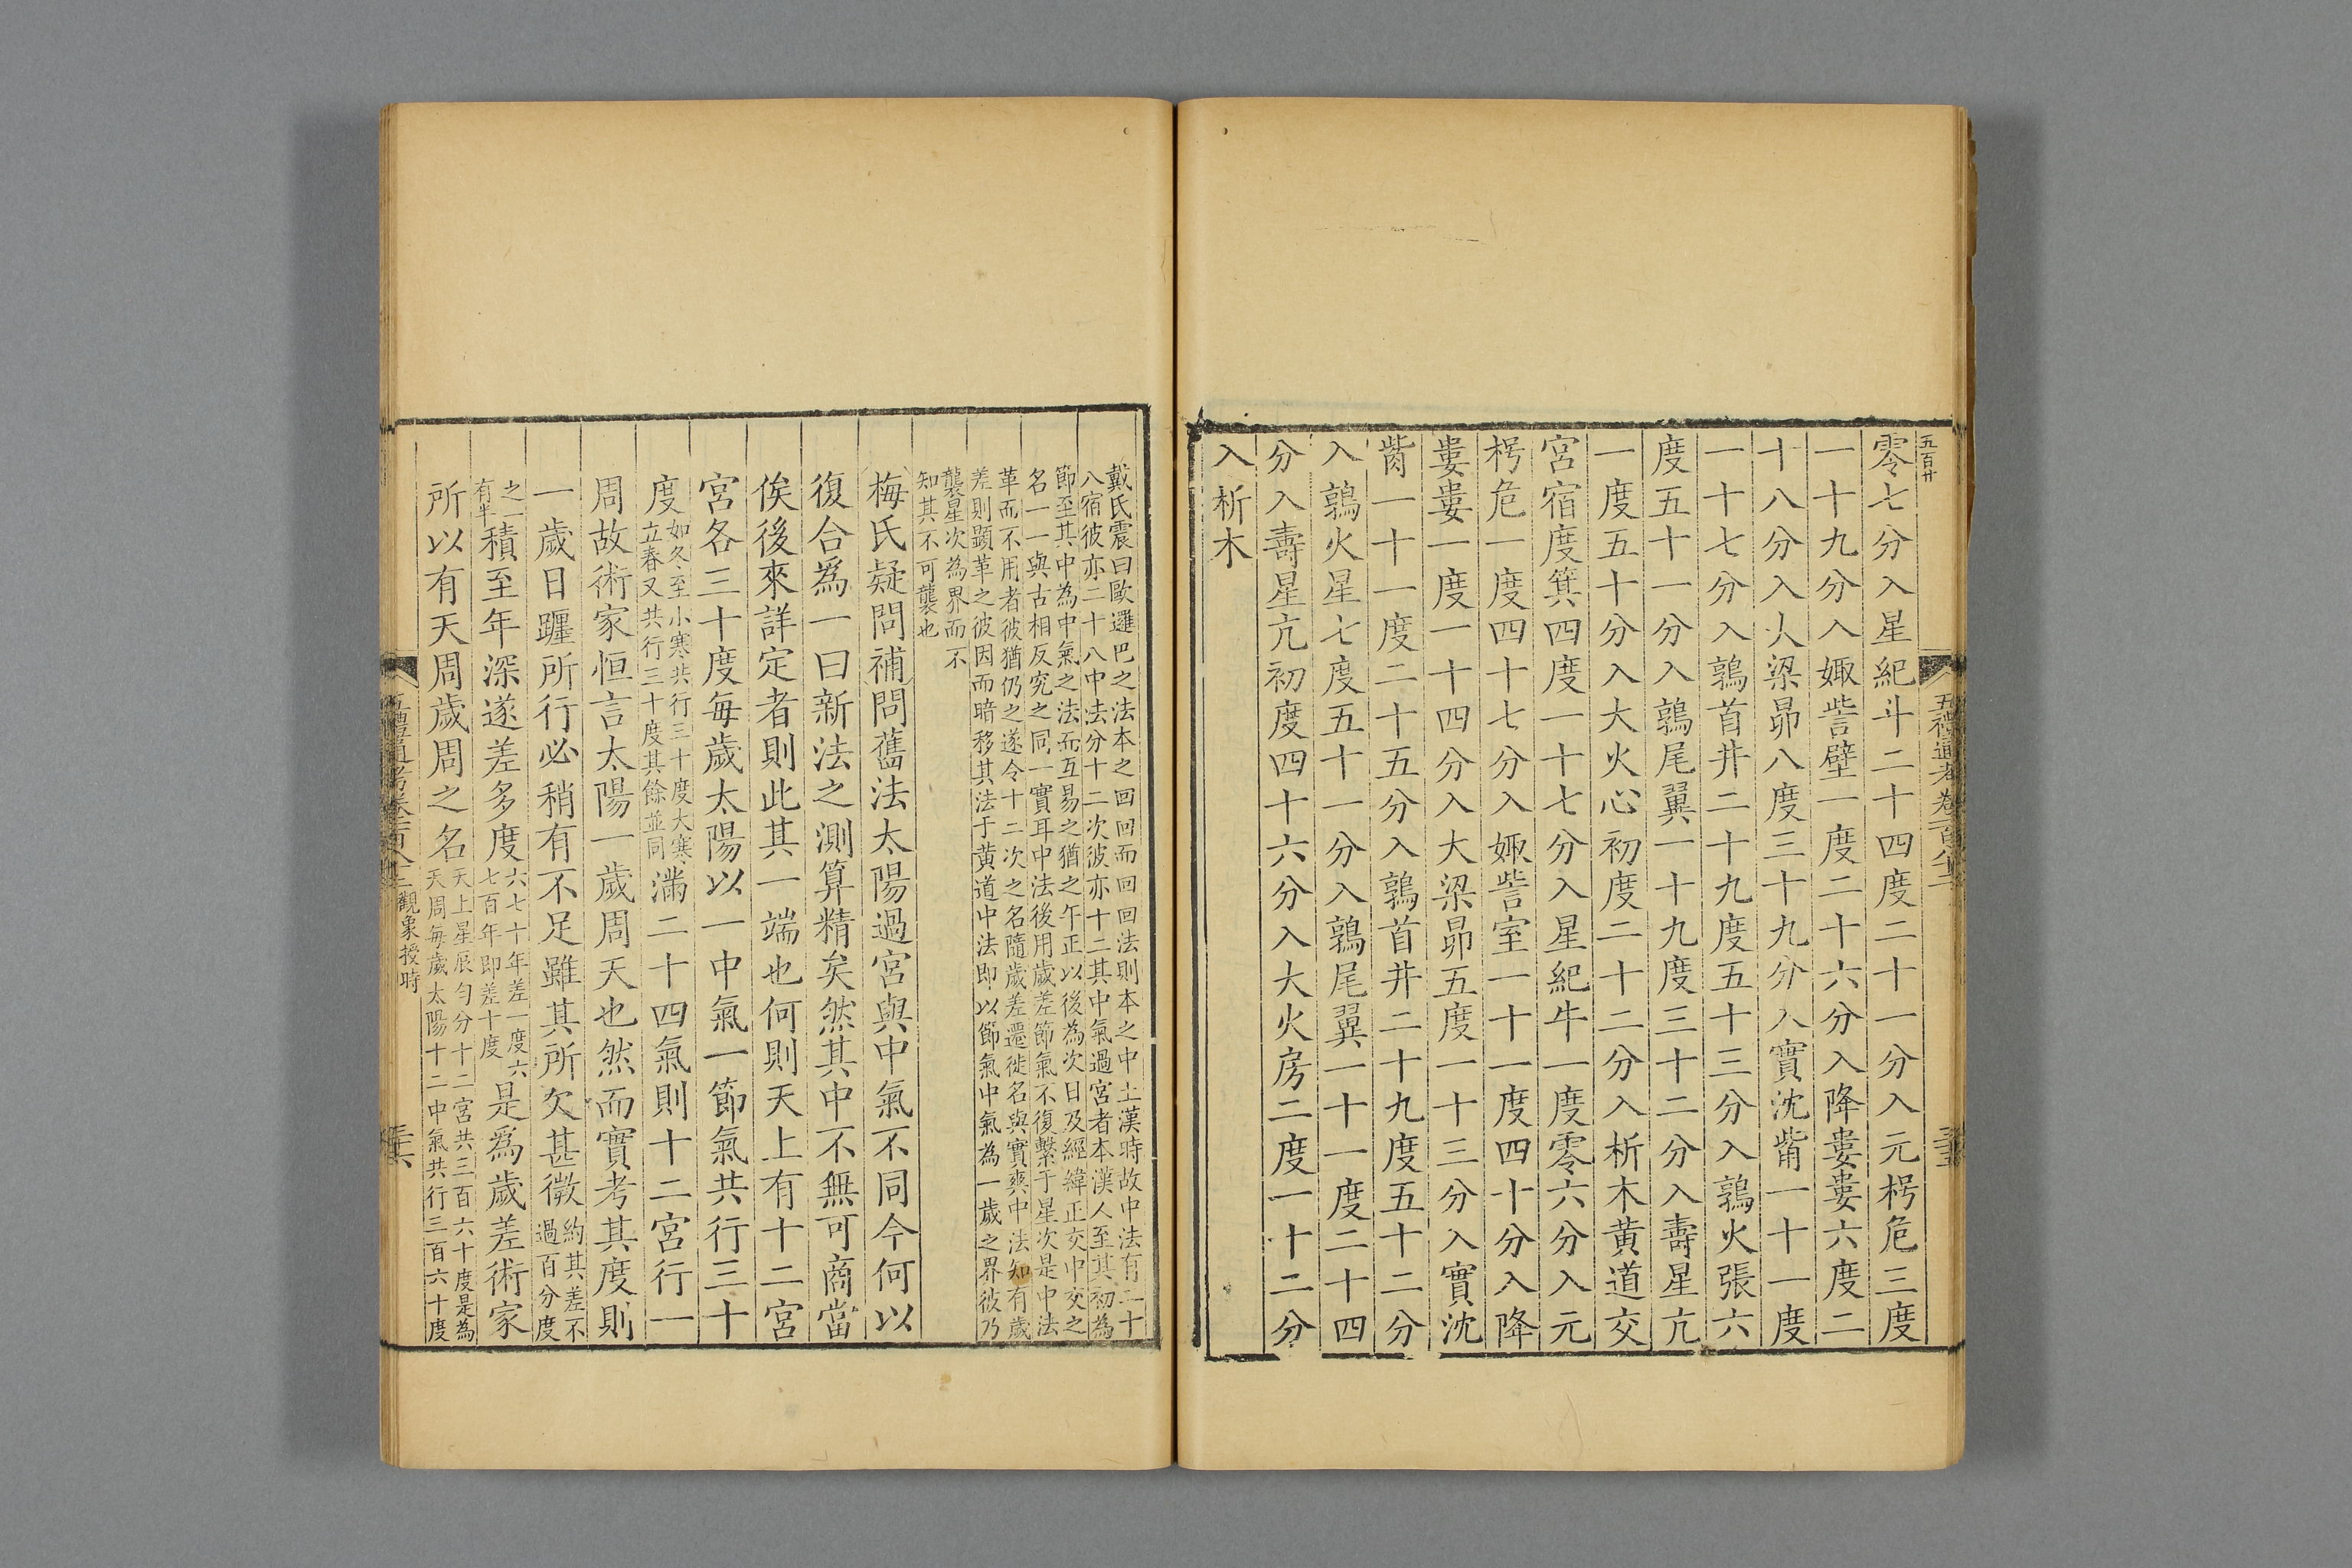 五百廿
零七分入星紀斗二十四度二十一分入元枵危三度
一十九分入娵訾壁一度二十六分入降婁婁六度二
十八分入大梁昴八度三十九分入實沈觜一十一度
一十七分入鶉首井二十九度五十三分入鶉火張六
度五十一分入鶉尾翼一十九度三十二分入壽星亢
一度五十分入大火心初度二十二分入析木黃道交
宮宿度箕四度一十七分入星紀牛一度零六分入元
枵危一度四十七分入娵訾室一十一度四十分入降
婁婁一度一十四分入大梁昴五度一十三分入實沈
觜一十一度二十五分入鶉首井二十九度五十二分
入鶉火星七度五十一分入鶉尾翼一十一度二十四
分入壽星亢初度四十六分入大火房二度一十二分
入析木
戴氏震曰歐邏巴之法本之回回而回回法則本之中土漢時故中法有二十
八宿彼亦二十八中法分十二次彼亦十二其中氣過宮者本漢人至其初為
節至其中為中氣之法而互易之猶之午正以後為次日及經緯正交中交之
名一一與古相反究之同一實耳中法後用歲差節氣不復繫于星次是中法
革而不用者彼猶仍之遂令十二次之名隨歲差遷徙名與實爽中法知有歲
差則顯革之彼因而暗移其法于黄道中法即以節氣中氣為一歲之界彼乃
襲星次為界而不
知其不可襲也
梅氏疑問補問舊法太陽過宮與中氣不同今何以
復合爲一曰新法之測算精矣然其中不無可商當
俟後來詳定者則此其一端也何則天上有十二宮
宮各三十度每歲太陽以一中氣一節氣共行三十
度如冬至小寒共行三十度大寒立春又共行三十度其餘並同滿二十四氣則十二宮行一
周故術家恒言太陽一歲周天也然而實考其度則
一歲日躔所行必稍有不足雖其所欠甚微約其差不過百分度
之一有半積至年深遂差多度六七十年差一度六七百年即差十度是爲歲差術家
所以有天周歲周之名天上星辰匀分十二宮共三百六十度是為天周每歲太陽十二中氣共行三百六十度
五禮通考卷一百八十二
觀象授時